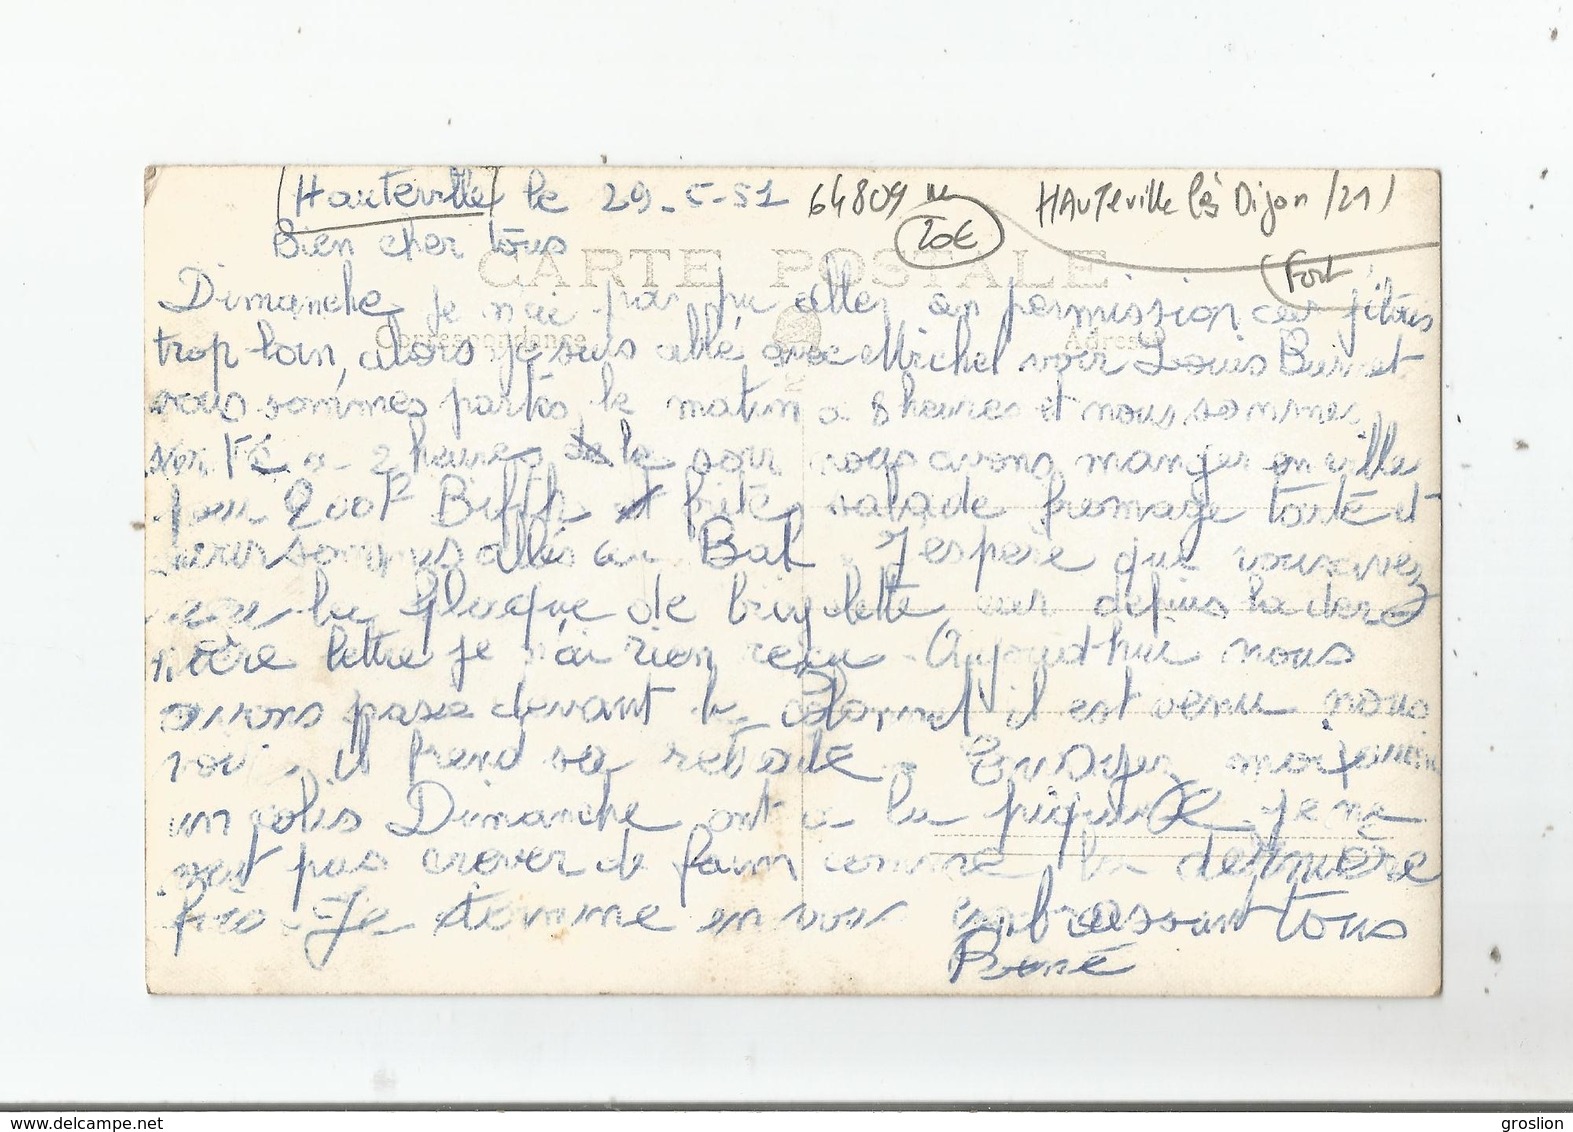 Hauteville le 29-5-51 64809 20€ HAUTEVILLE lès Dijon (21)
Fort
Bien cher tous
CARTE POSTALE
Correspondance Adresse
Dimanche je n'ai pas pu aller en permission car j'étais
trop loin, alors je suis allé avec Michel voir Louis
nous sommes partis le matin a 8 heures et nous sommes
a 2 heures le soir nous avons manger en ville
pour 200F Bifth et frite, salade fromage tarte et
sommes allés au Bal J'espere que vous avez
la plaque de bicyclette car depuis la der
nière lettre je n'ai rien reçu - Aujourd'hui nous
avons passé devant le Colonnel il est venu nous
voir, il prend sa retraite - Envoyer moi
un colis Dimanche ont a la piqure Je ne
veut pas crever de faim comme la dernière
fois - Je termine en vous embrassant tous
René
delcampe.net
groslion